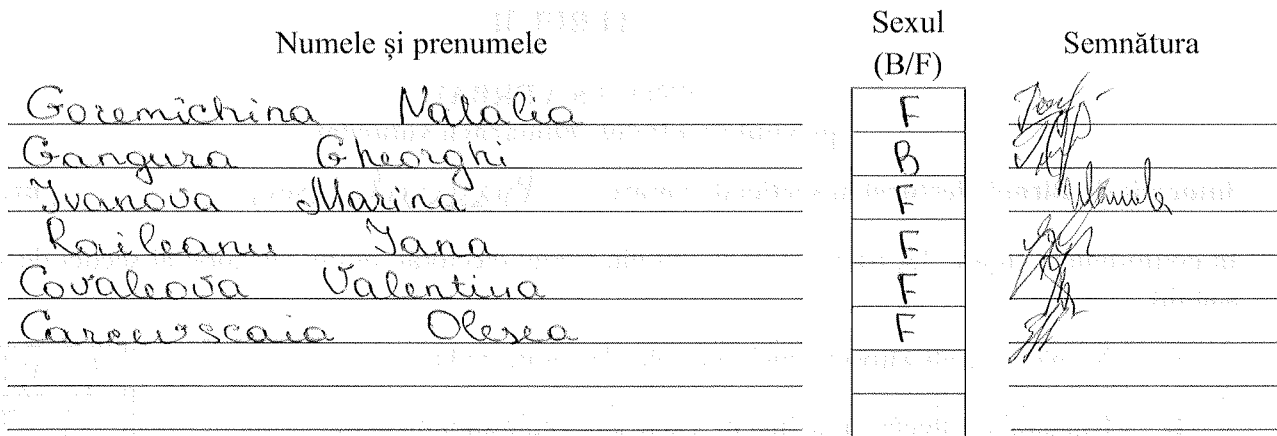 Numele și prenumele Sexul (B/F) Semnătura
Goremichina Natalia F
Gangura Gheorghi B
Ivanova Marina F
Raileanu Iana F
Covaleova Valentina F
F